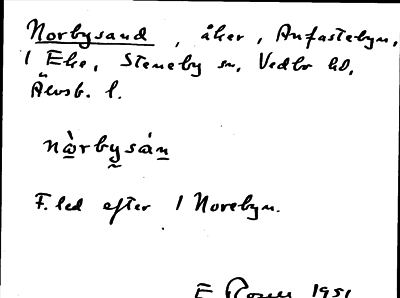 Norbysand, åker, Anfastebyn,
1 Eke, Steneby sn, Vedbo hd,
Älvsb. l.
nòrbysán
F. led efter 1 Norebyn.
E 1951